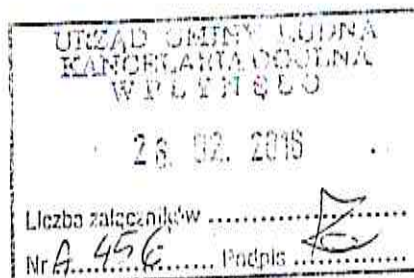 URZĄD GMINY
KANCELARIA OGÓLNA
WPŁYNĘŁO
02.
Liczba załączników ..........
Nr A. 456 Podpis ..........